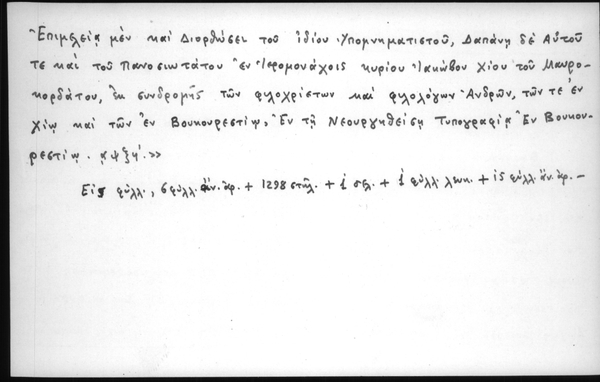 Ἐπιμελείᾳ μὲν καὶ Διορθώσει τοῦ ἰδίου Ὑπομνηματιστοῦ, Δαπάνῃ δὲ Αὐτοῦ
τε καὶ τοῦ Πανοσιωτάτου ἐν Ἱερομονάχοις κυρίου Ἰακώβου Χίου τοῦ Μαυρο-
κορδάτου, ἐκ συνδρομῆς τῶν φιλοχρίστων καὶ φιλολόγων Ἀνδρῶν, τῶν τε ἐν
Χίῳ καὶ τῶν ἐν Βουκουρεστίῳ, Ἐν τῇ Νεουργηθείσῃ Τυπογραφίᾳ Ἐν Βουκου-
ρεστίῳ. ͵αψξη΄.»
Εἰς φύλλ., 6 φύλλ. ἄν. ἀρ. + 1298 στήλ. + 1 σελ. + 1 φύλλ. λευκ. + 15 φύλλ. ἄν. ἀρ. –